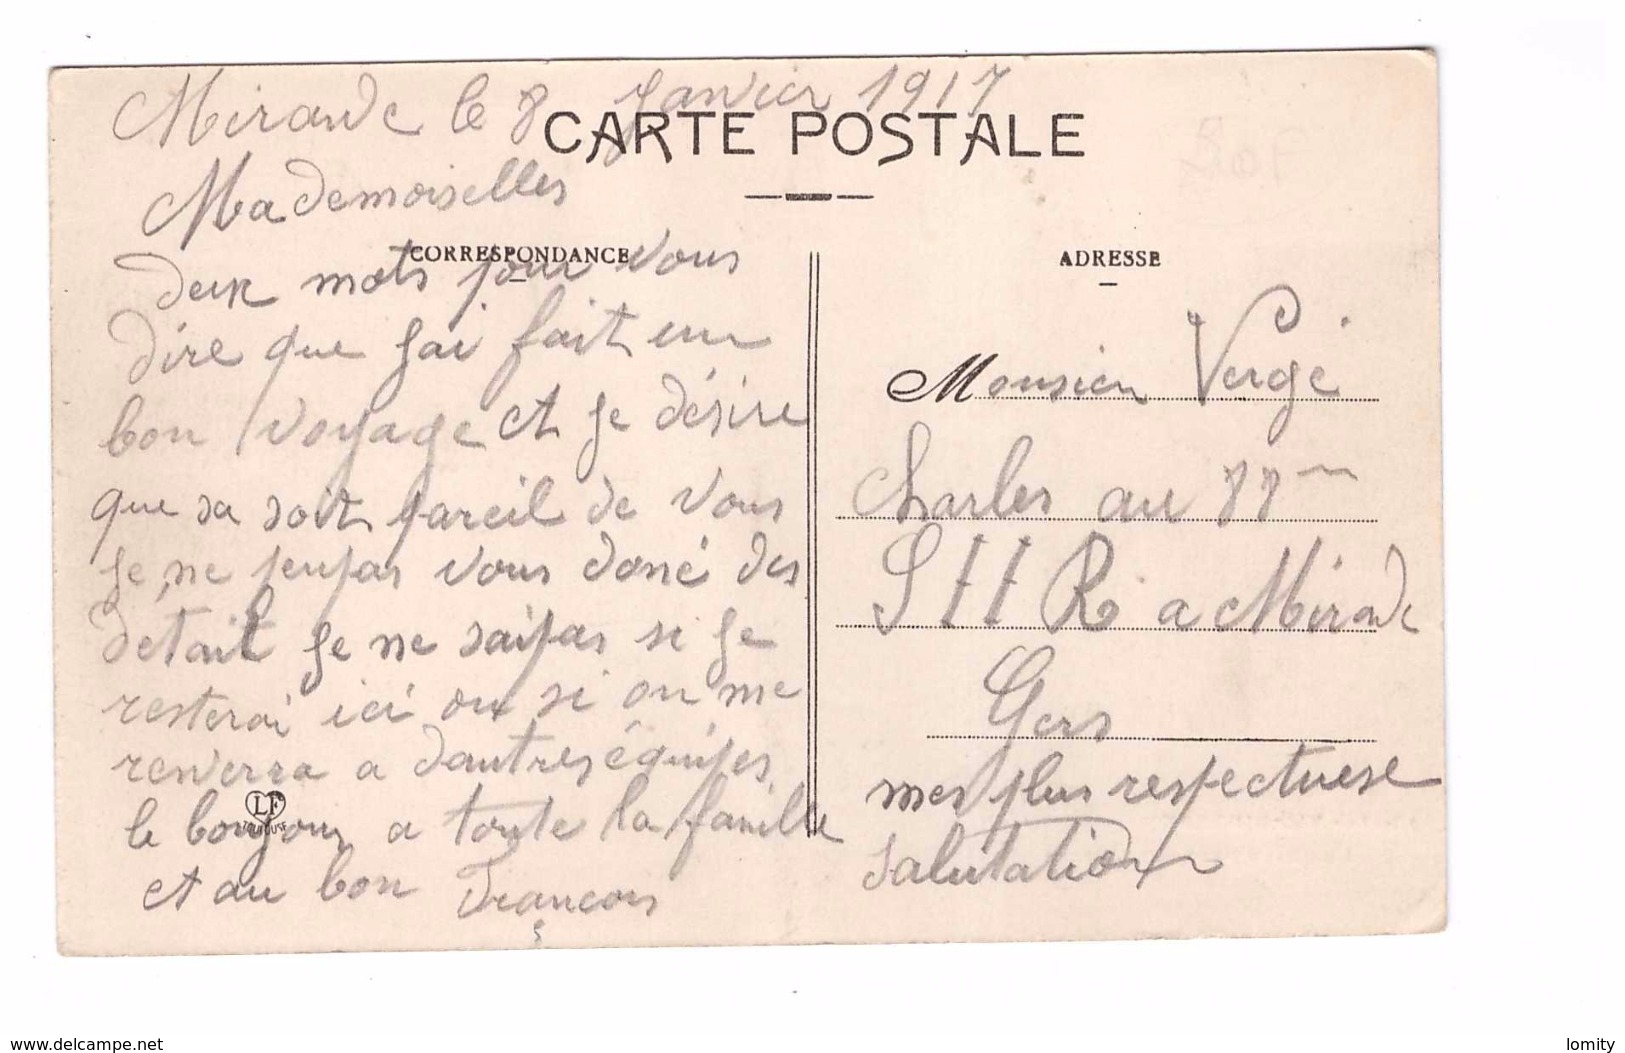 Mirande le 8 Janvier 1917
CARTE POSTALE
Mademoiselles
CORRESPONDANCE
deux mots pour vous
dire que jai fait un
bon voyage et je désire
que sa soit pareil de vous
je ne peu pas vous doné des
détail je ne sai pas si je
resterai ici ou si on me
renverra a dautres équipes
le bonjour a toute la famille
et au bon François
LF
TOULOUSE
ADRESSE
Monsieur Vergé
Charles au 88me
S H R a Mirande
Gers
mes plus respectuese
salutation
www.delcampe.net
lomity